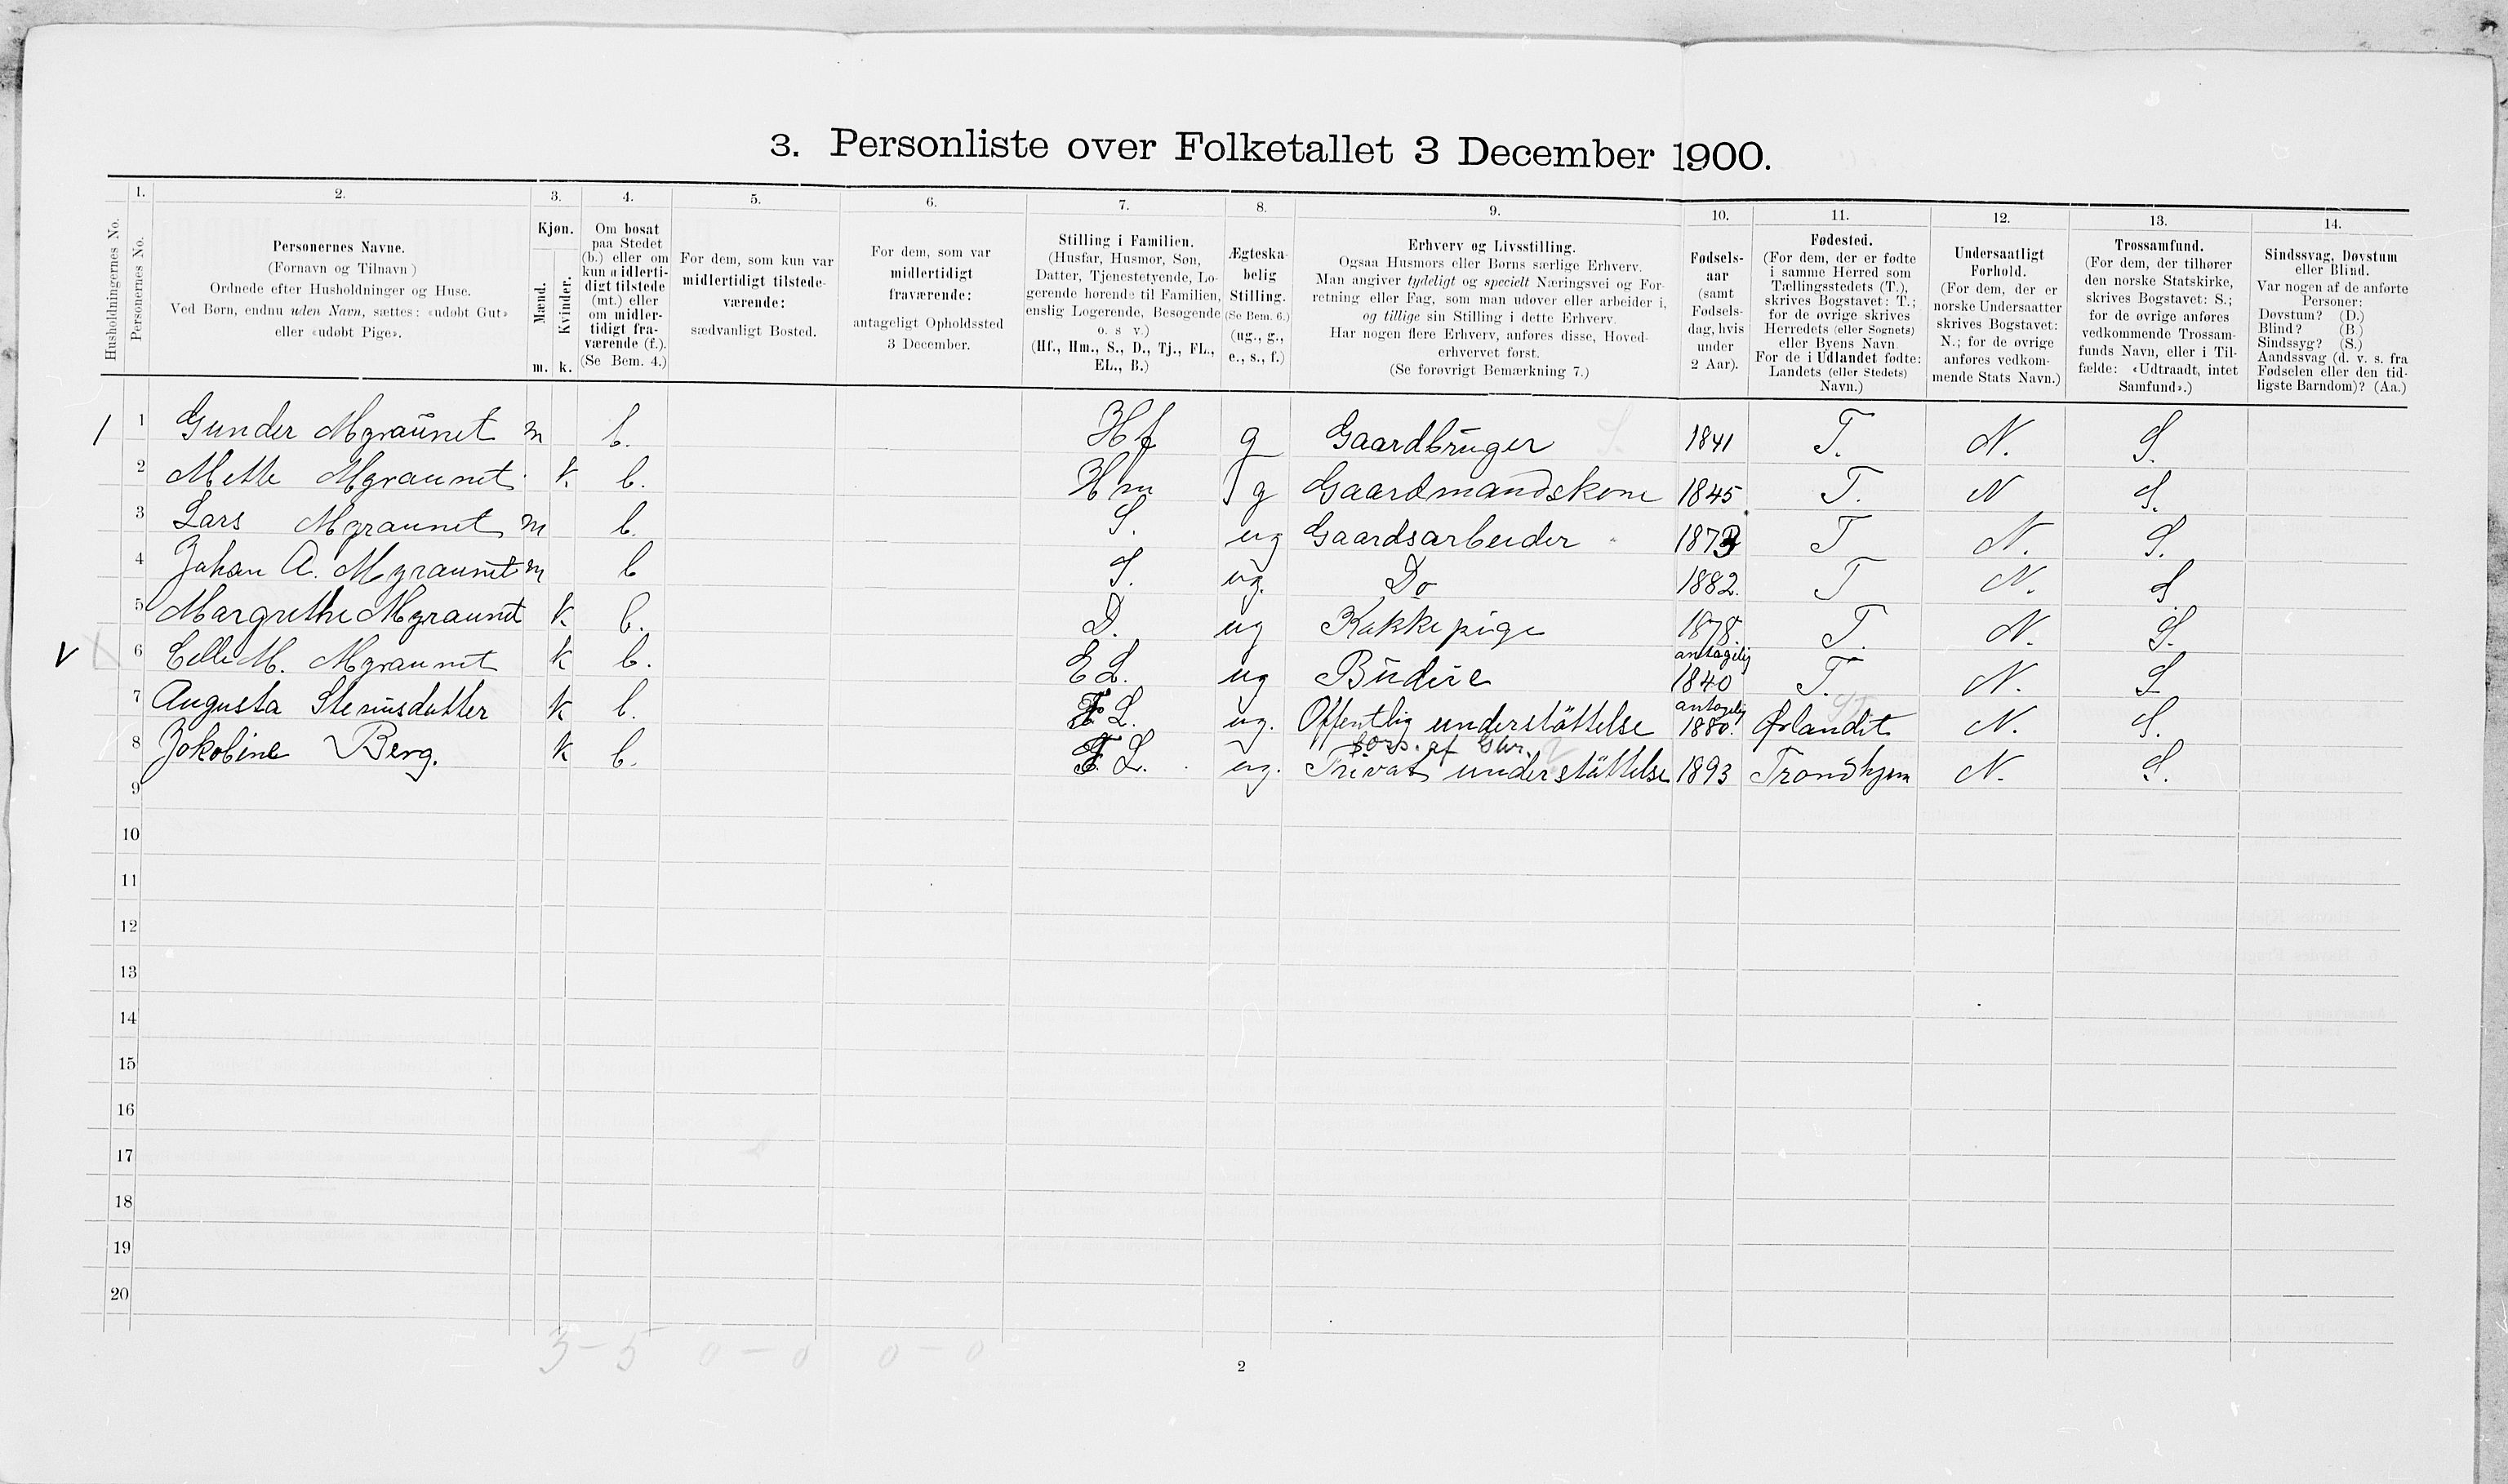 3. Personliste over Folketallet 3 December 1900.
1. 2. 3. 4. 5. 6. 7. 8. 9. 10. 11. 12. 13. 14.
Husholdningernes No.
Personernes No.
Personernes Navne.
(Fornavn og Tilnavn)
Ordnede efter Husholdninger og Huse.
Ved Børn, endnu uden Navn, sættes: «udøbt Gut»
eller «udøbt Pige».
Kjøn.
Mænd.
Kvinder.
m. k.
Om bosat
paa Stedet
(b.) eller om
kun midlerti-
digt tilstede
(mt.) eller
om midler-
tidigt fra-
værende (f.).
(Se Bem. 4.)
For dem, som kun var
midlertidigt tilstede-
værende:
sædvanligt Bosted.
For dem, som var
midlertidigt
fraværende:
antageligt Opholdssted
3 December.
Stilling i Familien.
(Husfar, Husmor, Søn,
Datter, Tjenestetyende, Lo-
gerende hørende til Familien,
enslig Logerende, Besøgende
o. s. v.)
(Hf., Hm., S., D., Tj., FL.,
EL., B.)
Ægteska-
belig
Stilling.
(Se Bem. 6.)
(ug., g.,
e., s., f.)
Erhverv og Livsstilling.
Ogsaa Husmors eller Børns særlige Erhverv.
Man angiver tydeligt og specielt Næringsvei og For-
retning eller Fag, som man udøver eller arbeider i,
og tillige sin Stilling i dette Erhverv.
Har nogen flere Erhverv, anføres disse, Hoved-
erhvervet først.
(Se forøvrigt Bemærkning 7.)
Fødsels-
aar
(samt
Fødsels-
dag, hvis
under
2 Aar).
Fødested.
(For dem, der er fødte
i samme Herred som
Tællingsstedets (T.),
skrives Bogstavet: T.;
for de øvrige skrives
Herredets (eller Sognets)
eller Byens Navn.
For de i Udlandet fødte:
Landets (eller Stedets)
Navn.)
Undersaatligt
Forhold.
(For dem, der er
norske Undersaatter
skrives Bogstavet:
N.; for de øvrige
anføres vedkom-
mende Stats Navn.)
Trossamfund.
(For dem, der tilhører
den norske Statskirke,
skrives Bogstavet: S.;
for de øvrige anføres
vedkommende Trossam-
funds Navn, eller i Til-
fælde: «Udtraadt, intet
Samfund».)
Sindssvag, Døvstum
eller Blind.
Var nogen af de anførte
Personer:
Døvstum? (D.)
Blind? (B.)
Sindssyg? (S.)
Aandssvag (d. v. s. fra
Fødselen eller den tid-
ligste Barndom)? (Aa.)
1 1 Gunder Mgraunet m b. Hf g Gaardbruger 1841 T. N. S.
2 Mette Mgraunet k b. Hm g Gaardmandskone 1845 T. N S.
3 Lars Mgraunet m b. S. ug Gaardsarbeider 1873 T N. S.
4 Johan A. Mgraunet m b S. ug. Do 1882. T N. S
5 Margrethe Mgraunet k b. D. ug Kokkepige 1878. T. N. S.
6 M. Mgraunet k b. EL. ug Budeie antagelig 1840 T. N. S
7 Augusta Stenusdatter k b. FL. ug. Offentlig understöttelse antagelig 1880. Ørlandet N. S.
8 Jokobine Berg. k b. FL. ug. fors. af Privat understöttelse 1893 Trondhjem N. S.
9
10
11
12
13
14
15
16
17
18
19
20
3 - 5 0 - 0 0 - 0
2